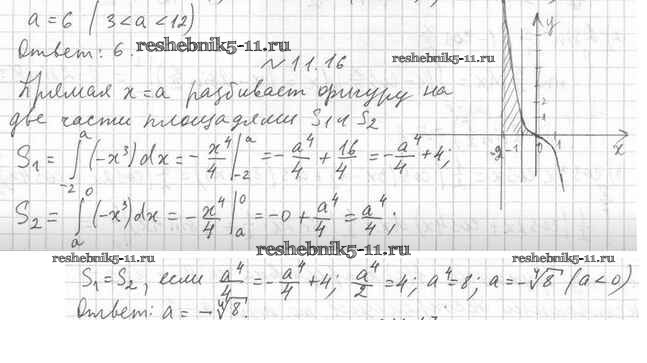 a = 6 (3 < a < 12)
Ответ: 6.
reshebnik5-11.ru
reshebnik5-11.ru
№ 11.16
Прямая x = a разбивает фигуру на
две части площадями S₁ и S₂
S₁ = ∫₋₂ᵃ (-x³)dx = -x⁴/4 |₋₂ᵃ = -a⁴/4 + 16/4 = -a⁴/4 + 4;
S₂ = ∫ₐ⁰ (-x³)dx = -x⁴/4 |ₐ⁰ = -0 + a⁴/4 = a⁴/4;
y
4
2
-2 -1 0 1 x
reshebnik5-11.ru
reshebnik5-11.ru
reshebnik5-11.ru
S₁ = S₂, если a⁴/4 = -a⁴/4 + 4; a⁴/2 = 4; a⁴ = 8; a = -⁴√8 (a < 0)
Ответ: a = -⁴√8.